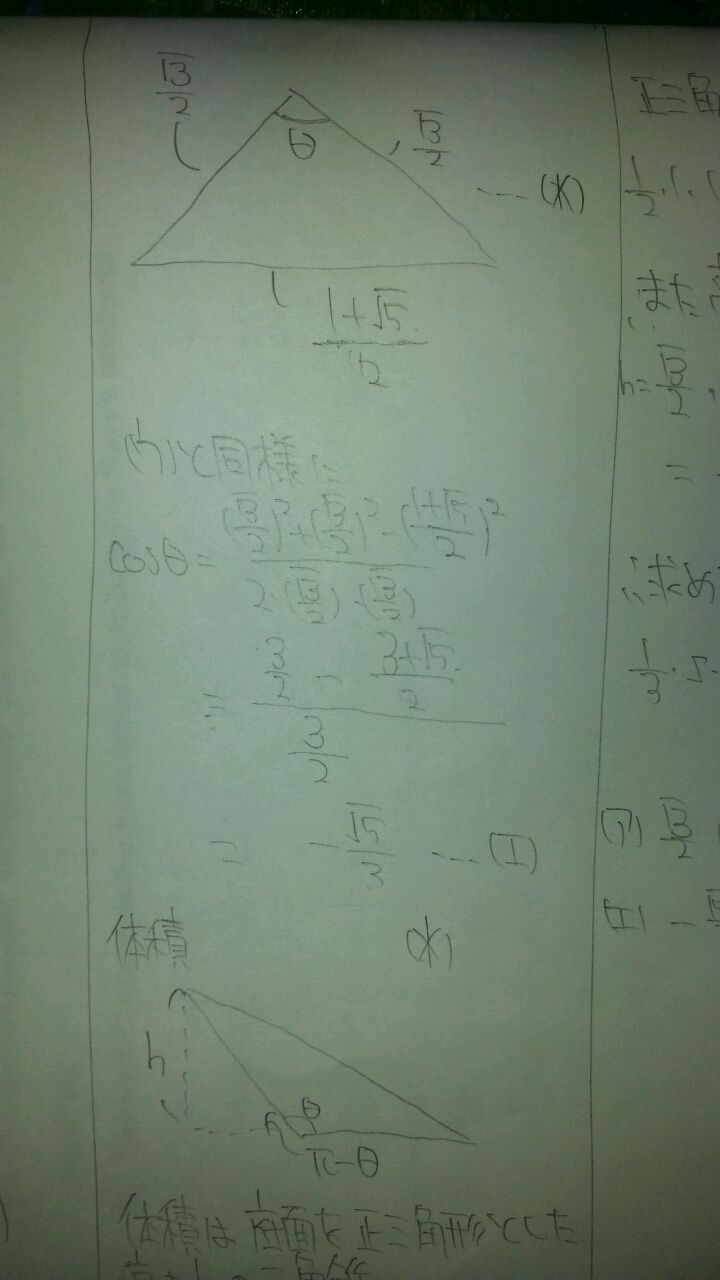 √3/2
θ
√3/2
---(*)
(1+√5)/2
(ウ)と同様に
cosθ= ((√3/2)²+(√3/2)²-((1+√5)/2)²)/(2·(√3/2)·(√3/2))
= (3/2 - (3+√5)/2)/(3/2)
= -√5/3 ---(エ)
体積
(*)
h
θ
π-θ
体積は底面を正三角形とした
正三角
1/2·1·1
また
h=√3/2·
=
求め
1/3·S·
(ア) √3/2
(エ) -